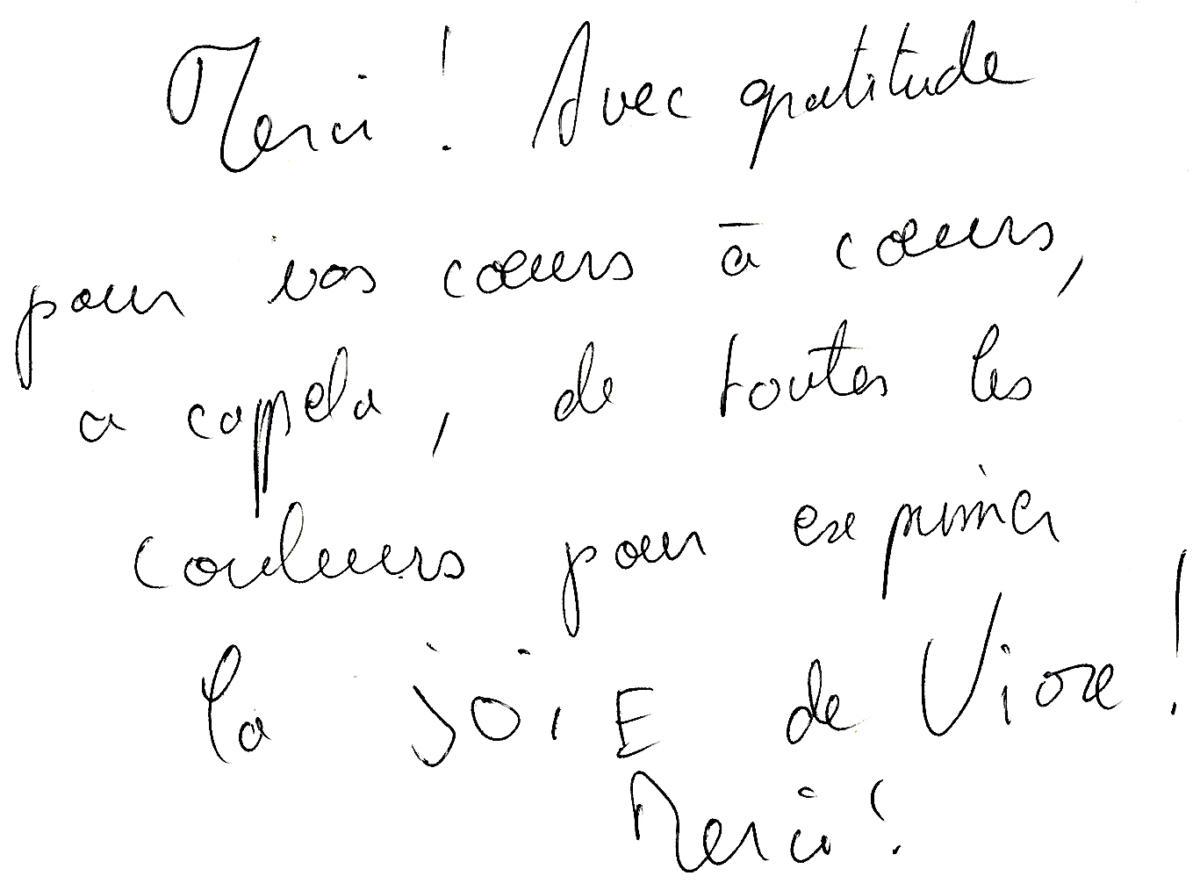 Merci ! Avec gratitude
pour vos cœurs à cœurs,
a cappela, de toutes les
couleurs pour exprimer
la JOiE de Vivre !
Merci !